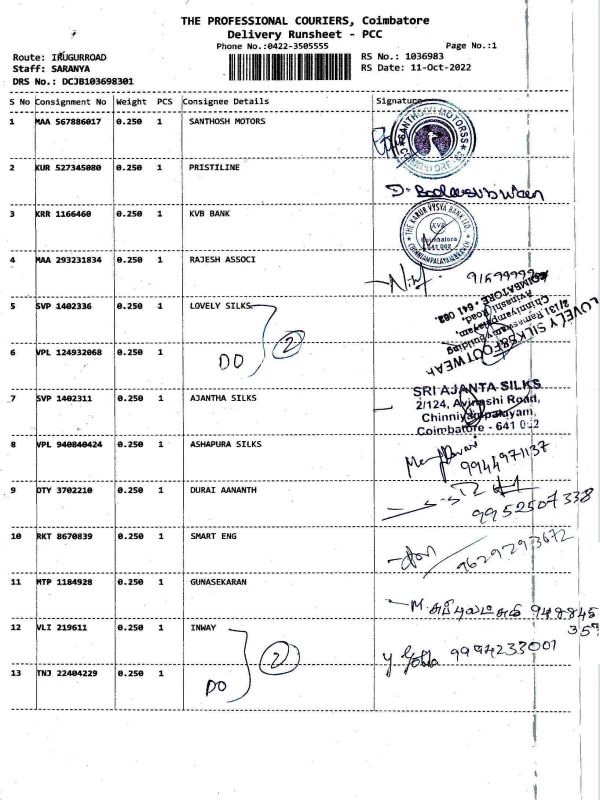 THE PROFESSIONAL COURIERS, Coimbatore
Delivery Runsheet - PCC
Phone No.:0422-3505555
Page No.:1
Route: IRUGURROAD
RS No.: 1036983
Staff: SARANYA
RS Date: 11-Oct-2022
DRS No.: DCJB103698301
S No Consignment No Weight PCS Consignee Details Signature
1 MAA 567886017 0.250 1 SANTHOSH MOTORS
SANTHOSH MOTORSS
2 KUR 527345080 0.250 1 PRISTILINE
3 KRR 1166460 0.250 1 KVB BANK
THE KARUR VYSYA BANK LTD.
KVB
Coimbatore
641 062
CHINNIAMPALAYAM BRANCH
4 MAA 293231834 0.250 1 RAJESH ASSOCI
5 SVP 1402336 0.250 1 LOVELY SILKS
LOVELY SILKS & FOOTWEAR
2/131 Ramaswamy Building
Chinniyampalayam,
Avinashi Road,
COIMBATORE - 641 062.
6 VPL 124932068 0.250 1 DO 2
7 SVP 1402311 0.250 1 AJANTHA SILKS
SRI AJANTA SILKS
2/124, Avinashi Road,
Chinniyampalayam,
Coimbatore - 641 062
8 VPL 940840424 0.250 1 ASHAPURA SILKS
9944971137
9 DTY 3702210 0.250 1 DURAI AANANTH
9952507338
10 RKT 8670839 0.250 1 SMART ENG
9629293672
11 MTP 1184928 0.250 1 GUNASEKARAN
12 VLI 219611 0.250 1 INWAY
9994233001
13 TNJ 22404229 0.250 1 DO 2